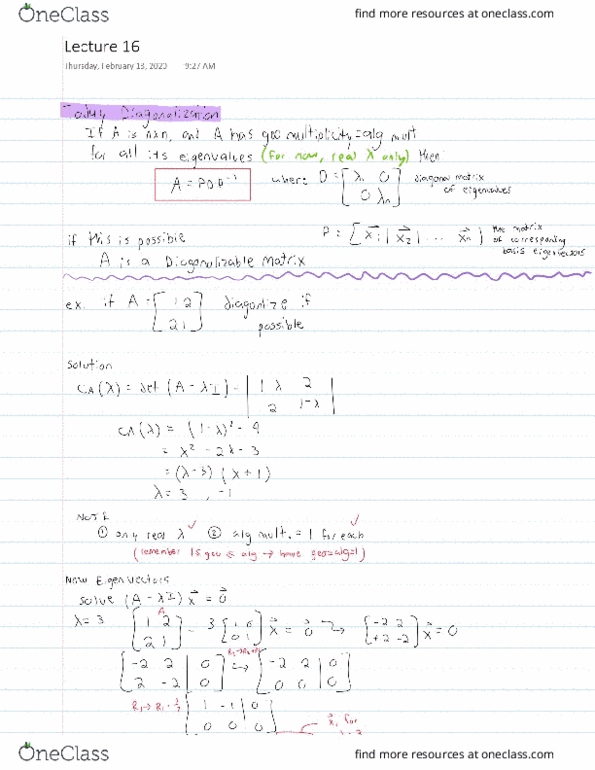 OneClass
find more resources at oneclass.com
Lecture 16
Thursday, February 13, 2020 9:27 AM
Today Diagonalization
If A is nxn, and A has geo multiplicity = alg mult
for all its eigenvalues (for now, real λ only) then
A = PDP⁻¹ where: D = [λ₁ 0 diagonal matrix
0 λn] of eigenvalues
if this is possible P = [x₁ | x₂ | ... xn] the matrix
of corresponding
A is a Diagonalizable Matrix basis eigenvectors
ex. if A = [1 2 diagonlize if
2 1] possible
Solution
CA(λ) = det (A - λI) = | 1 λ 2
2 1-λ |
CA(λ) = (1-λ)² - 4
= λ² - 2λ - 3
= (λ-3) (λ+1)
λ = 3 , -1
NOTE
① only real λ ✓ ② alg mult. = 1 for each ✓
(remember 1≤ geo ≤ alg → have geo=alg=1)
Now Eigenvectors
solve (A - λI) x = 0
A
λ = 3 [1 2 - 3 [1 0 x = 0 → [-2 2 x = 0
2 1] 0 1] +2 -2]
[-2 2 | 0 → [-2 2 | 0
2 -2 | 0] 0 0 | 0]
[1 -1 | 0
0 0 0]
x₁ for
OneClass
find more resources at oneclass.com